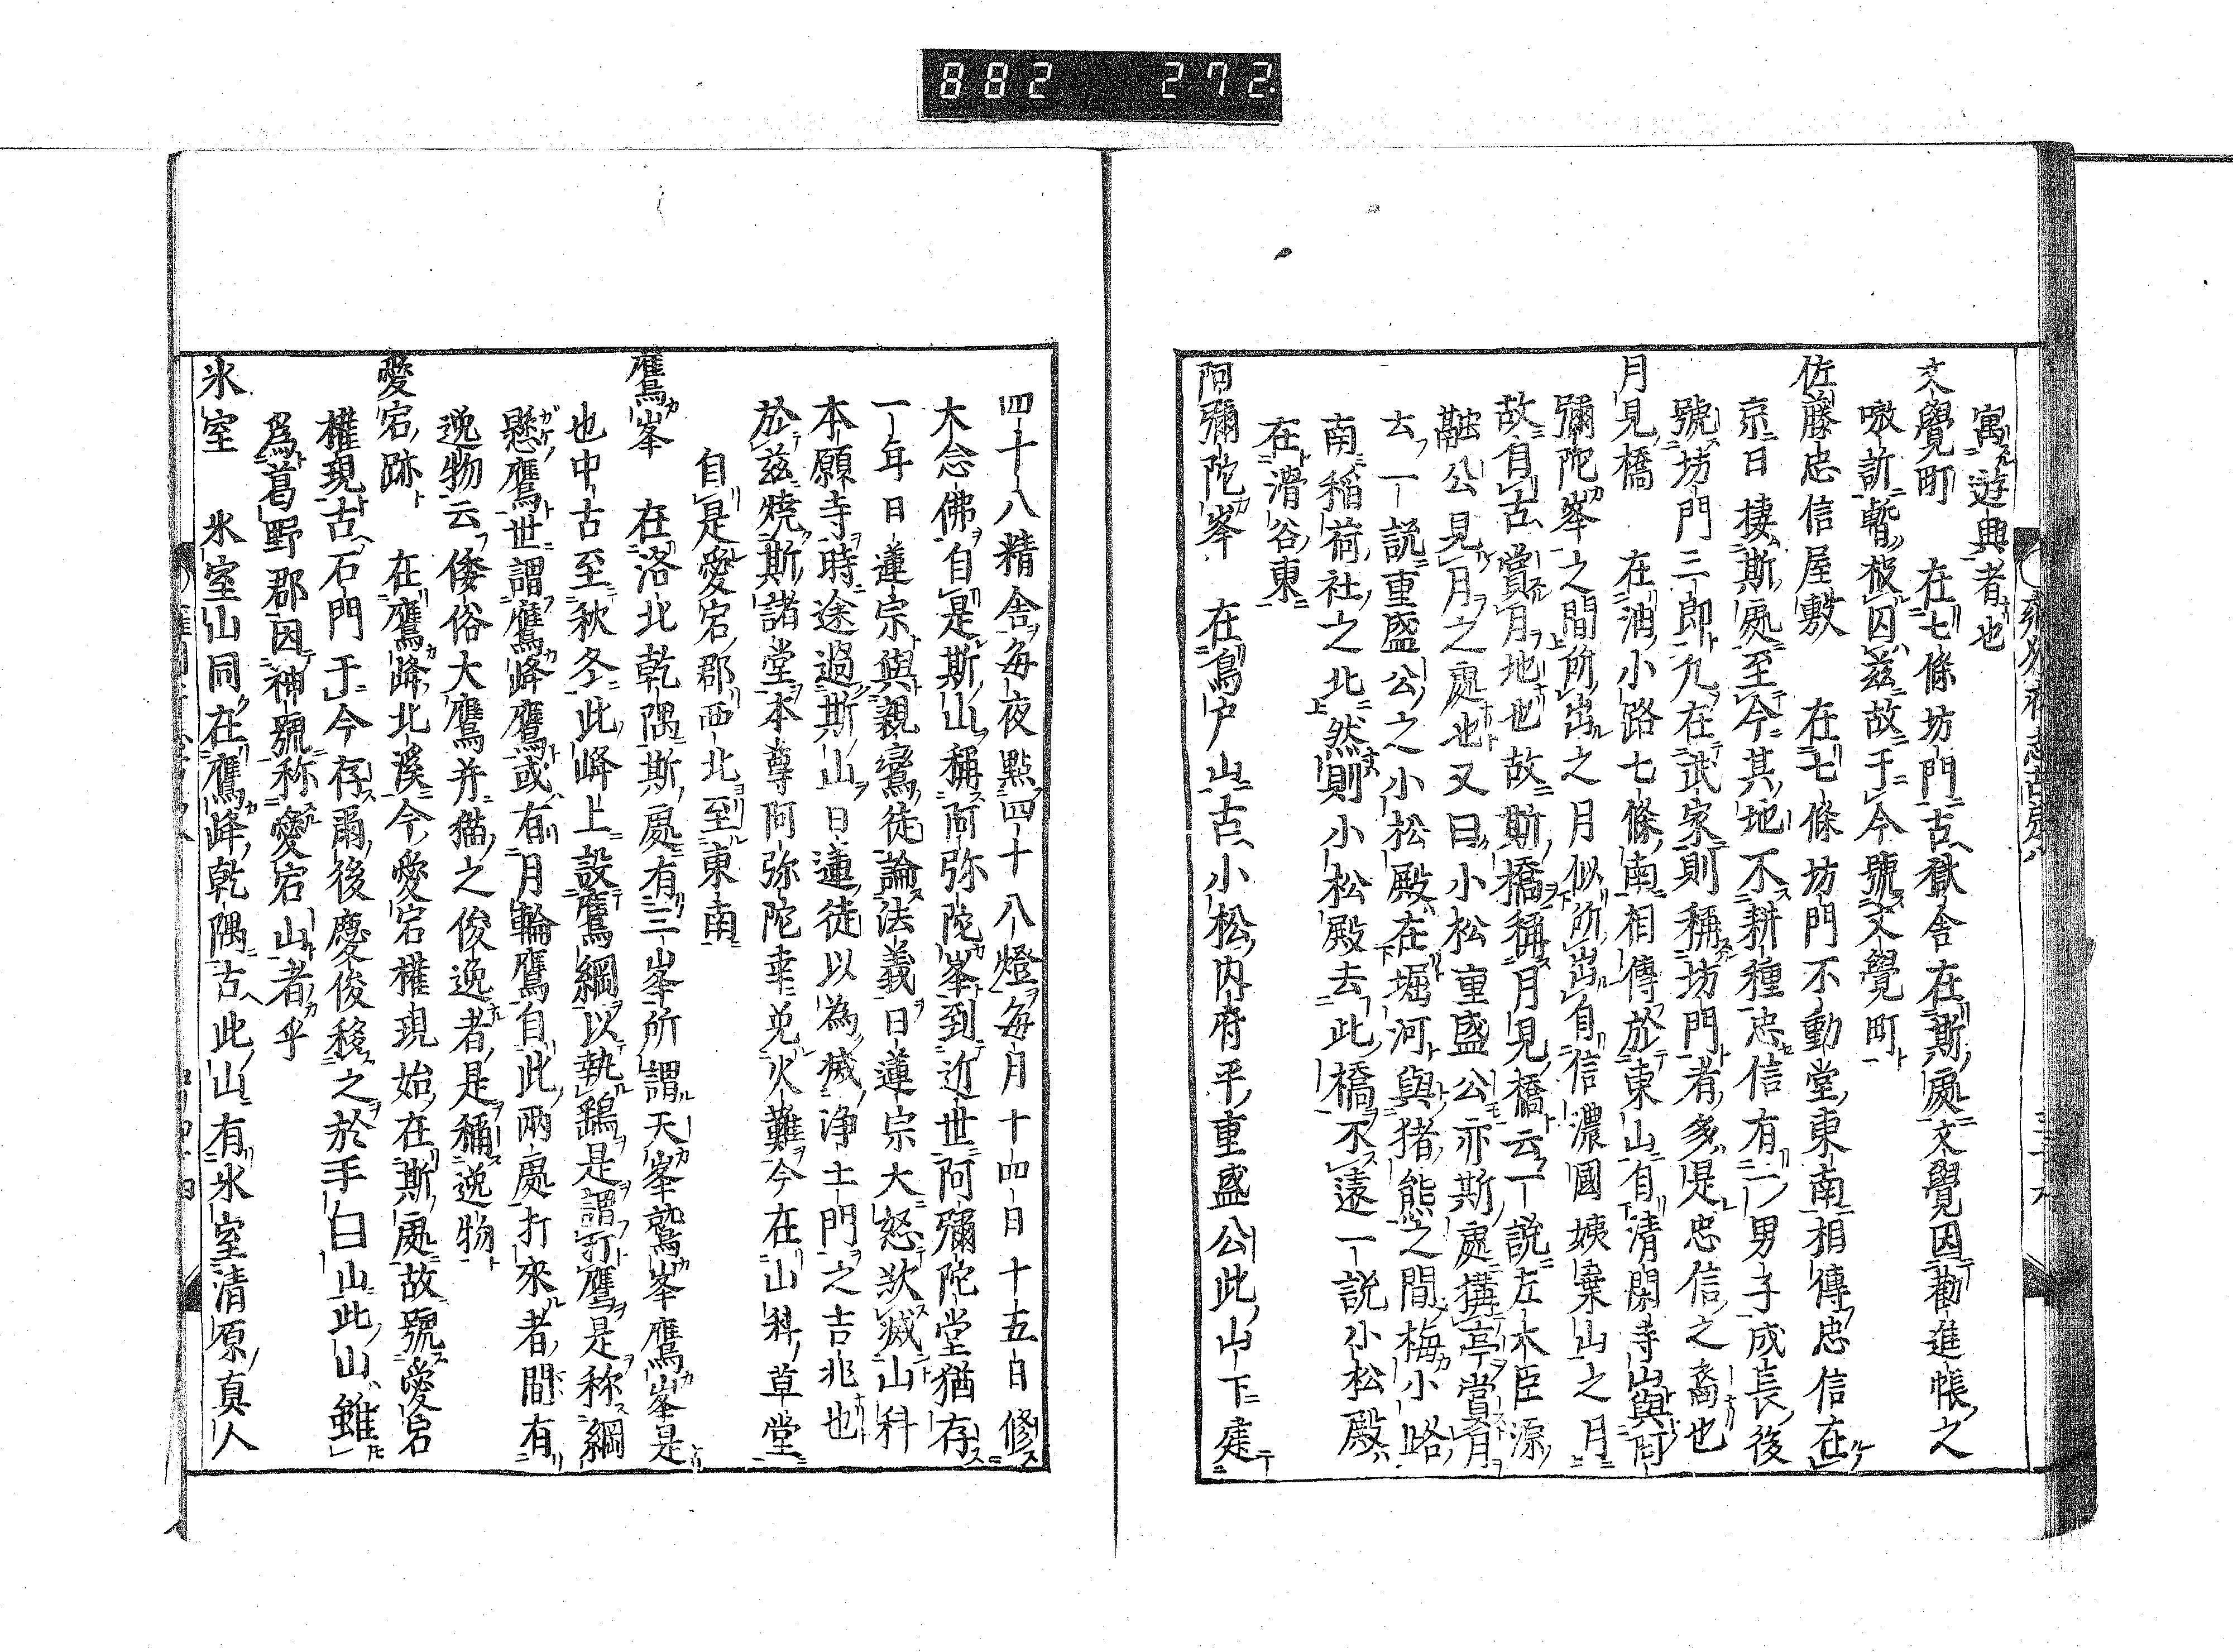 882 272.
寓遊典者也
文覺町 在七條坊門古獄舍在斯處文覺因勸進帳之
嗷訴暫被囚兹故于今號文覺町
佐藤忠信屋敷 在七條坊門不動堂東南相傳忠信在
京日棲斯處至今其地不耕種忠信有一男子成長後
號坊門三郎凡在武家則稱坊門者多是忠信之裔也
月見橋 在油小路七條南相傳於東山有清閑寺山與阿
彌陀峯之間所出之月似所出自信濃國姨棄山之月
故自古賞月地也故斯橋稱月見橋云一說左大臣源
融公見月之處也又曰小松重盛公亦斯處搆亭賞月
去一說重盛公之小松殿在堀河與猪熊之間梅小路
南稲荷社之北然則小松殿去此橋不遠一說小松殿
在滑谷東
阿彌陀峯 在鳥戸山古小松内府平重盛公此山下建
四十八精舍每夜點四十八燈每月十四日十五日修
大念佛自是斯山稱阿弥陀峯到近世阿彌陀堂猶存
一年日蓮宗與親鸞徒論法義日蓮宗大怒欲滅山科
本願寺時途過斯山日蓮徒以為滅浄土門之吉兆也
於茲燒斯諸堂本尊阿弥陀幸免火難今在山科草堂
自是愛宕郡西北至東南
鷹峯 在洛北乾隅斯處有三峯所謂天峯鷲峯鷹峯是
也中古至秋冬此峰上設鷹網以執鷂是謂打鷹是称網
懸鷹世謂鷹峰鷹或有月輪鷹自此兩處打來者間有
逸物云倭俗大鷹并猫之俊逸者是稱逸物
愛宕跡 在鷹峰北溪今愛宕權現始在斯處故號愛宕
權現古石門于今存爾後慶俊移之於手白山此山雖
爲葛野郡因神號称愛宕山者乎
氷室 氷室山同在鷹峰乾隅古此山有氷室清原真人